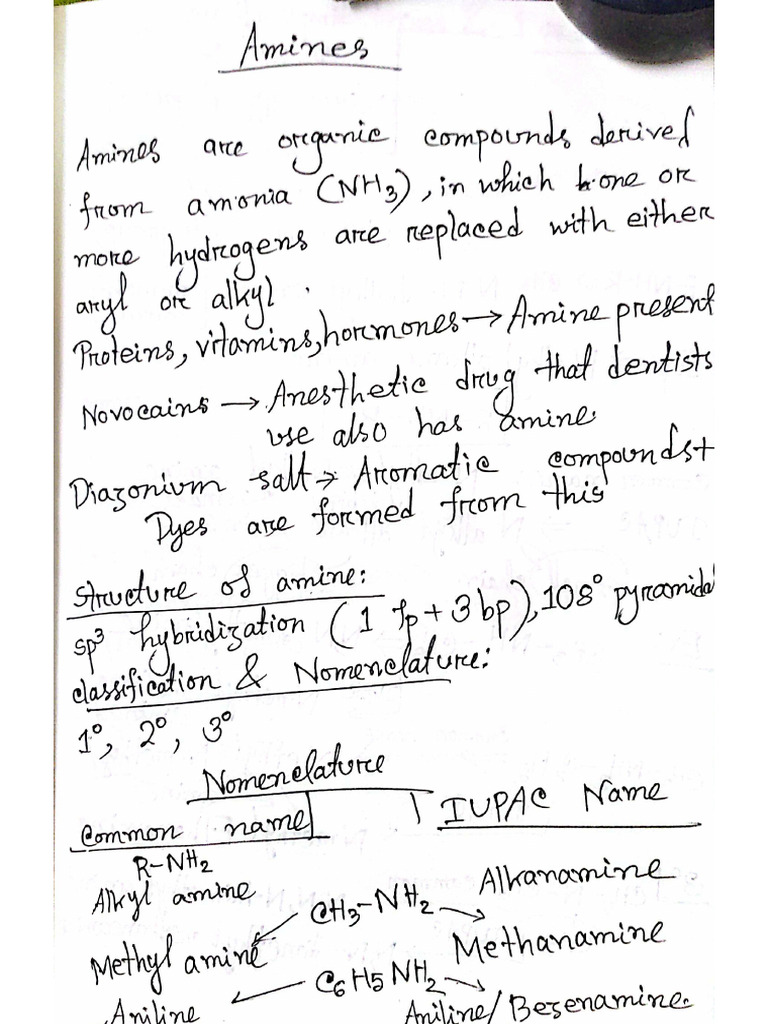 Amines
Amines are organic compounds derived
from amonia (NH3), in which one or
more hydrogens are replaced with either
aryl or alkyl.
Proteins, vitamins, hormones → Amine present
Novocains → Anesthetic drug that dentists
use also has amine.
Diazonium salt → Aromatic compounds +
Dyes are formed from this
Structure of amine:
sp3 hybridization (1 lp + 3 bp), 108° pyramidal
classification & Nomenclature:
1°, 2°, 3°
Nomenclature
Common name IUPAC Name
R-NH2
Alkyl amine Alkanamine
CH3-NH2
Methyl amine Methanamine
C6H5NH2
Aniline Aniline/Besenamine.